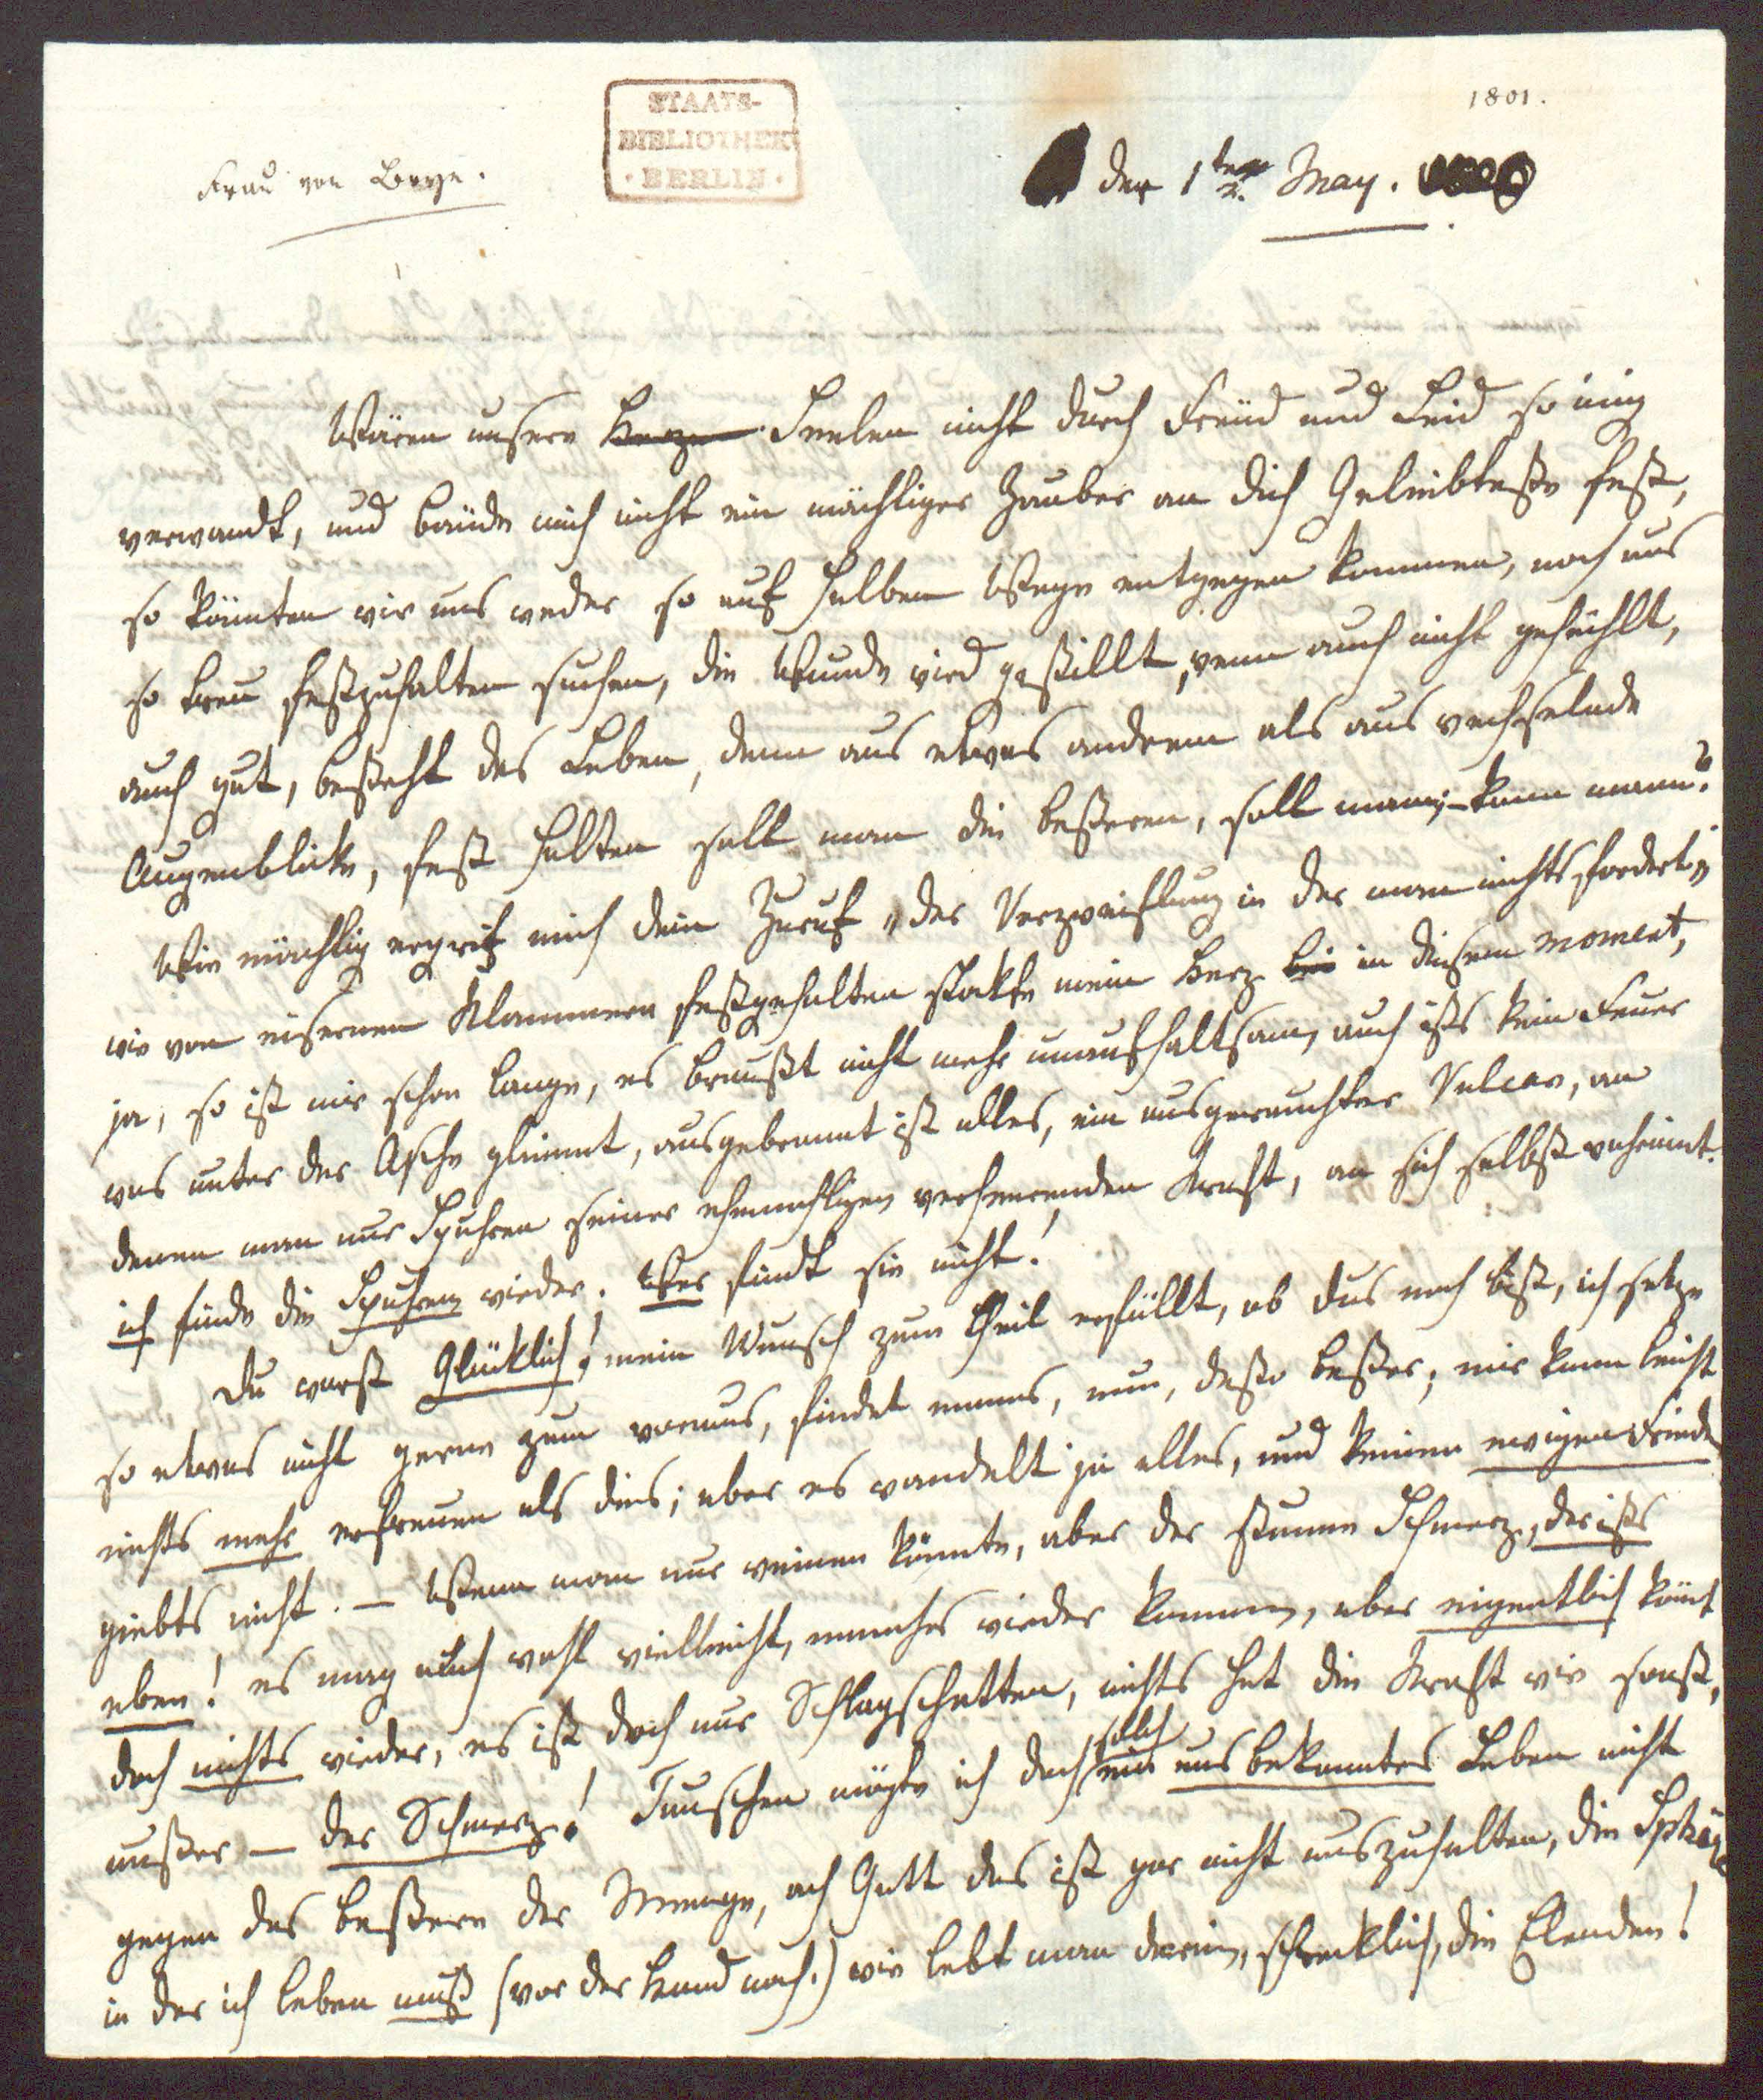 1801.
Frau von Boye.
STAATS-
BIBLIOTHEK
· BERLIN ·
den 1ten May.
Wären unsere Herzen Seelen nicht durch Freud und Leid so innig
verwandt, und bände mich nicht ein mächtiger Zauber an dich Geliebteste fest,
so könnten wir uns weder so auf halbem Wege entgegen kommen, noch uns
so treu festzuhalten suchen, die Wunde wird gestillt, wenn auch nicht geheilt,
auch gut, besteht das Leben, denn aus etwas anderem als aus wechselnde
Augenblicke, fest halten soll man die beßeren, soll man; – kann mann?
Wie mächtig ergrif mich dein Zuruf „der Verzweiflung in der man nichts fordert“
wie von eisernen Klammern festgehalten stokte mein Herz bei in diesem moment,
ja, so ist mir schon lange, es braußt nicht mehr unaufhaltsam, auch ists kein Feuer
was unter der Asche glimmt, ausgebrannt ist alles, ein ausgerauchter Vulcan, an
denen man nur Spuhren seiner ehemahligen verheerenden Kraft, an sich selbst vernimt.
ich finde die Spuhren wieder. Wer findt sie nicht!
Du warst Glüklich! mein Wunsch zum theil erfüllt, ob dus noch bist, ich setze
so etwas nicht gerne zum voraus, findet manns, nun, desto beßer; mir kann leicht
nichts mehr erfreuen als dies; aber es wandelt ja alles, und keinen ewigen Friede
giebts nicht. – Wenn man nur weinen könnte, aber der stumme Schmerz, der ists
eben! es mag auch wohl vielleicht, manches wieder kommen, aber eigentlich kömt
doch nichts wieder, es ist doch nur Schlagschatten, nichts hat die Kraft wie sonst,
außer – der Schmerz! Tauschen mögte ich doch solch ein uns bekanntes Leben nicht
gegen das beßere der Menge, ach Gott das ist gar nicht auszuhalten, die Sphäre
in der ich leben muß (vor der Hand noch.) wie lebt man darin, schreklich, die Elenden!